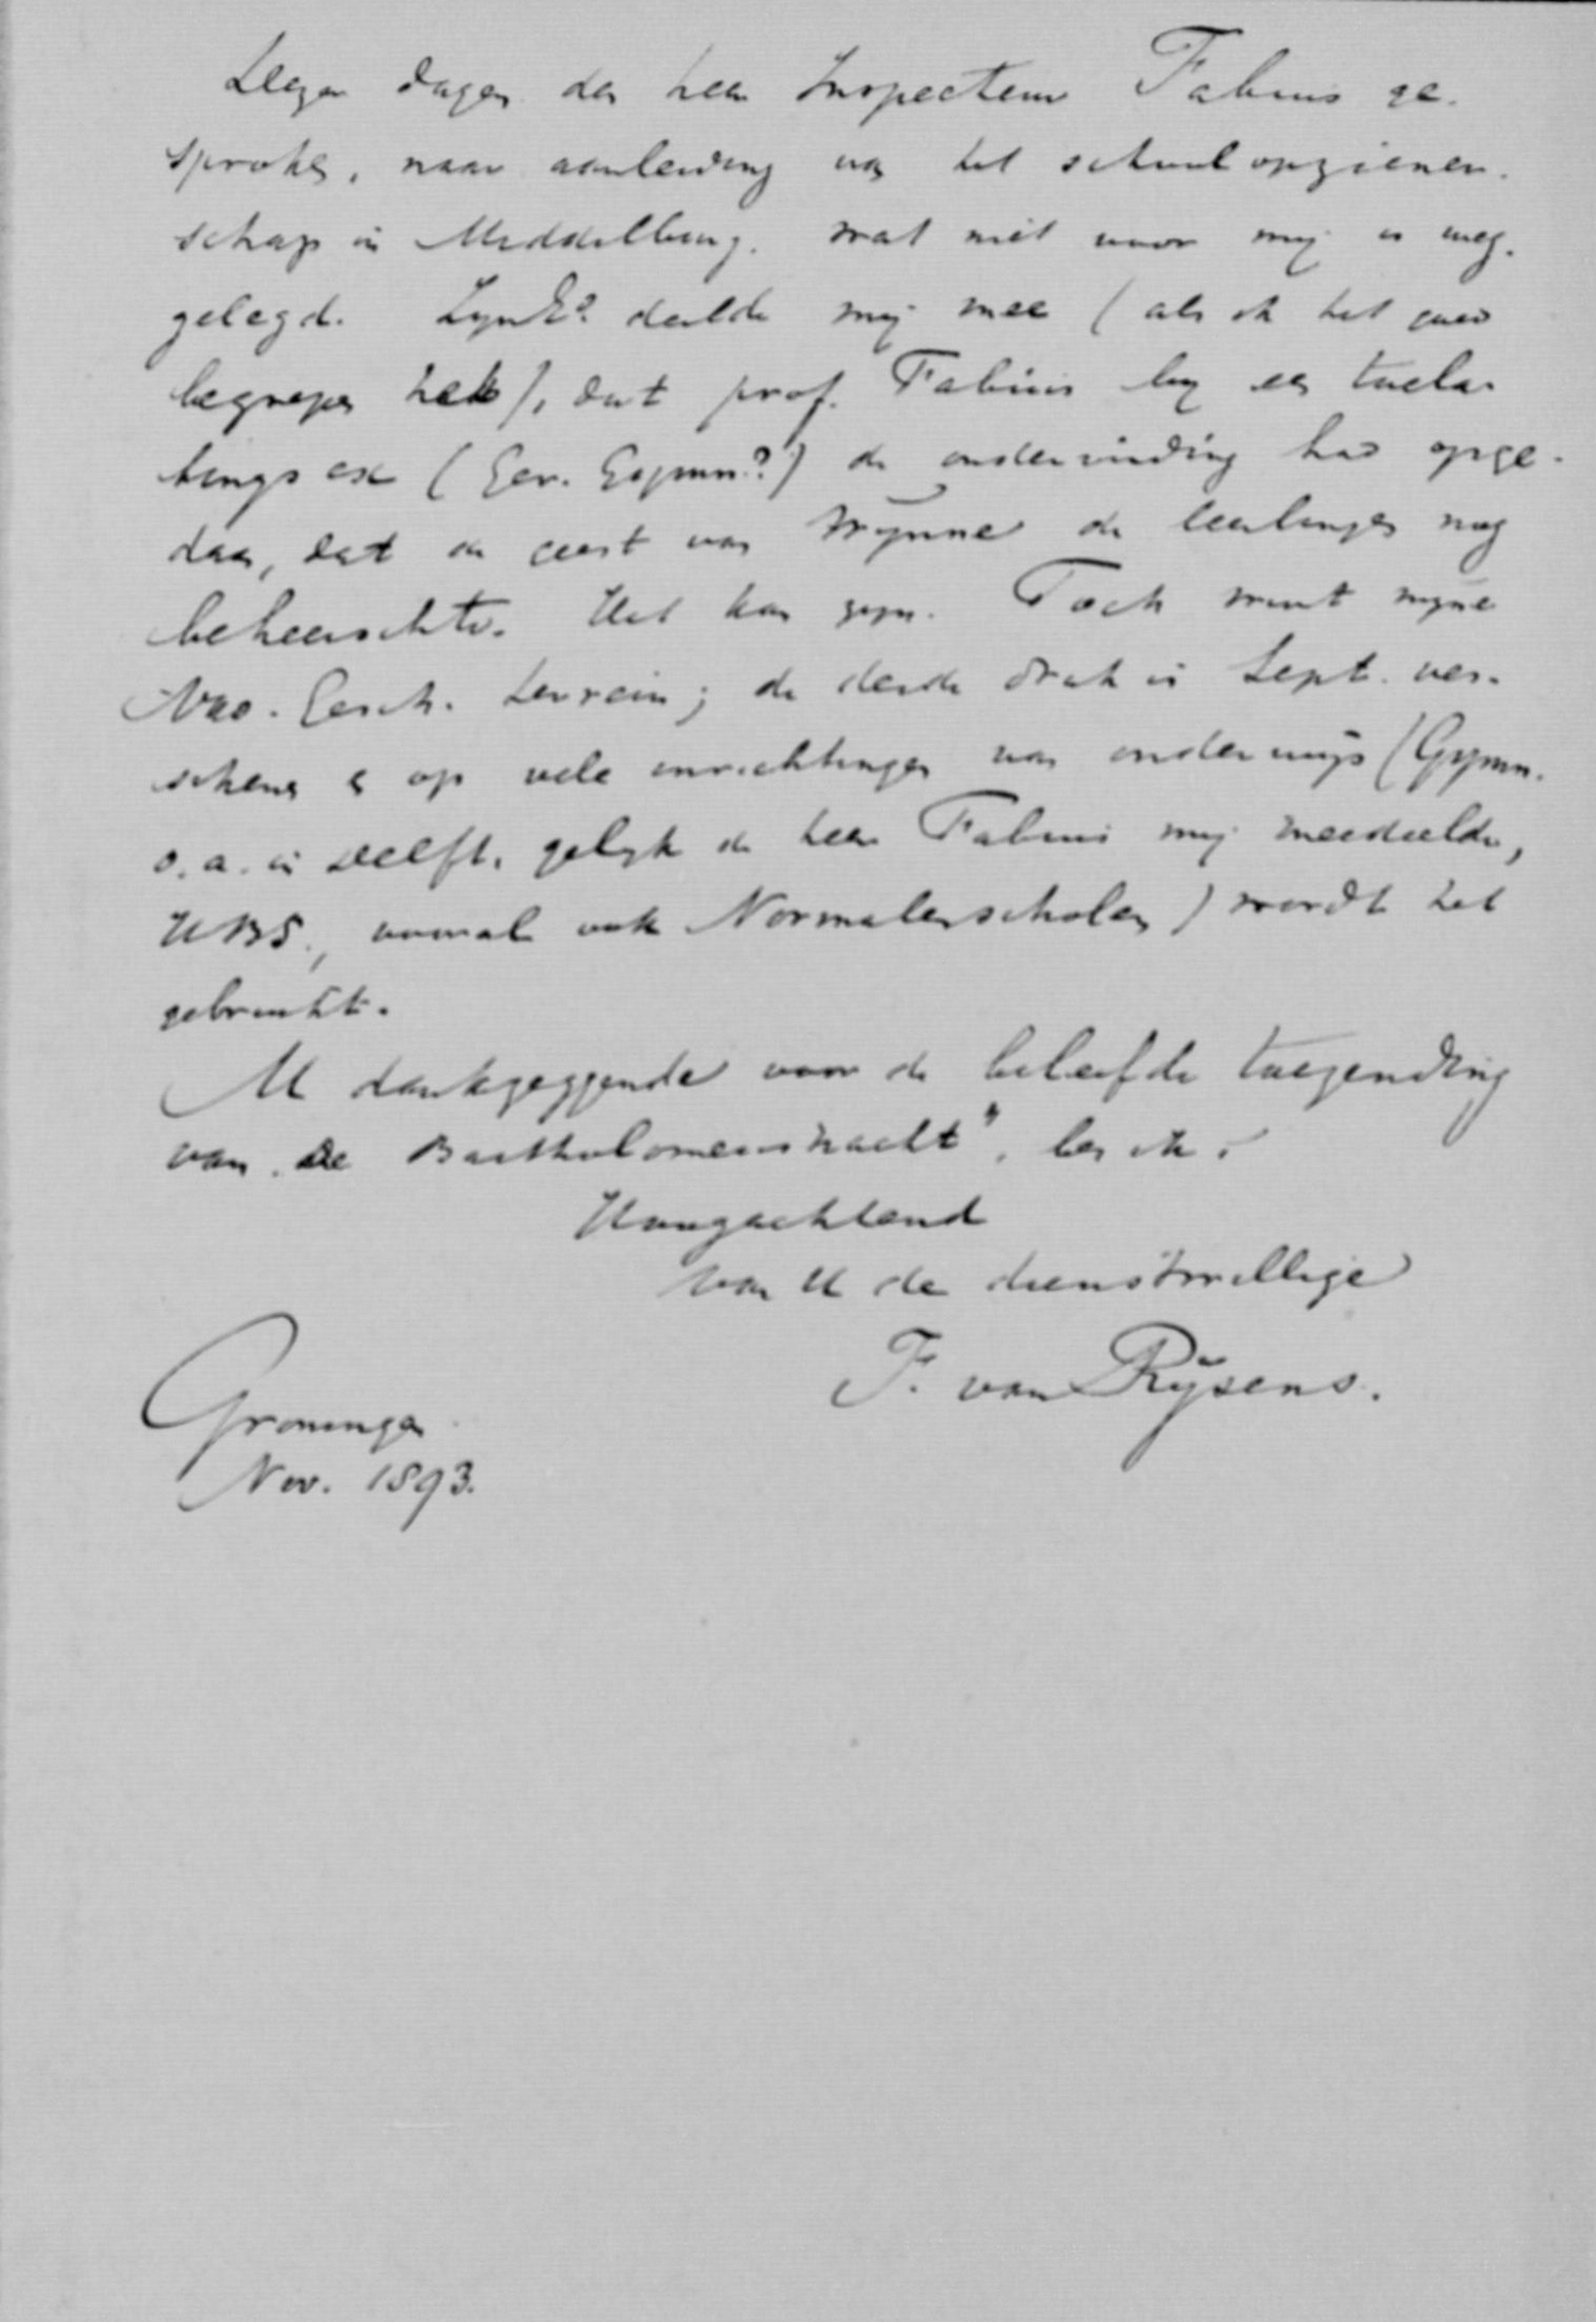 Dezer dagen den heer Inspecteur Fabius ge-
sproken, naar aanleiding van het schoolopziener-
schap in Middelburg, wat niet voor mij is weg-
gelegd. ZynEd. deelde mij mee (als ik het goed
begrepen heb), dat prof. Fabius bij een toela-
tings ex (Ger. Gymn.?) de ondervinding had opge-
daan, dat de geest van Wijnne de leerlingen nog
beheerschte. Het kan zyn. Toch wint mijne
Vad. Gesch. terrein; de derde druk is Sept. ver-
schenen en op vele inrichtingen van onderwijs (Gymn.
o.a. in Delft, gelijk de heer Fabius mij meedeelde,
HBS., vooral ook Normalenscholen) wordt het
gebruikt.
U dankzeggende voor de beleefde toezending
van „De Bartholomeusnacht", ben ik,
Hoogachtend
van U de dienstwillige
F. van Rijsens.
Groningen
Nov. 1893.